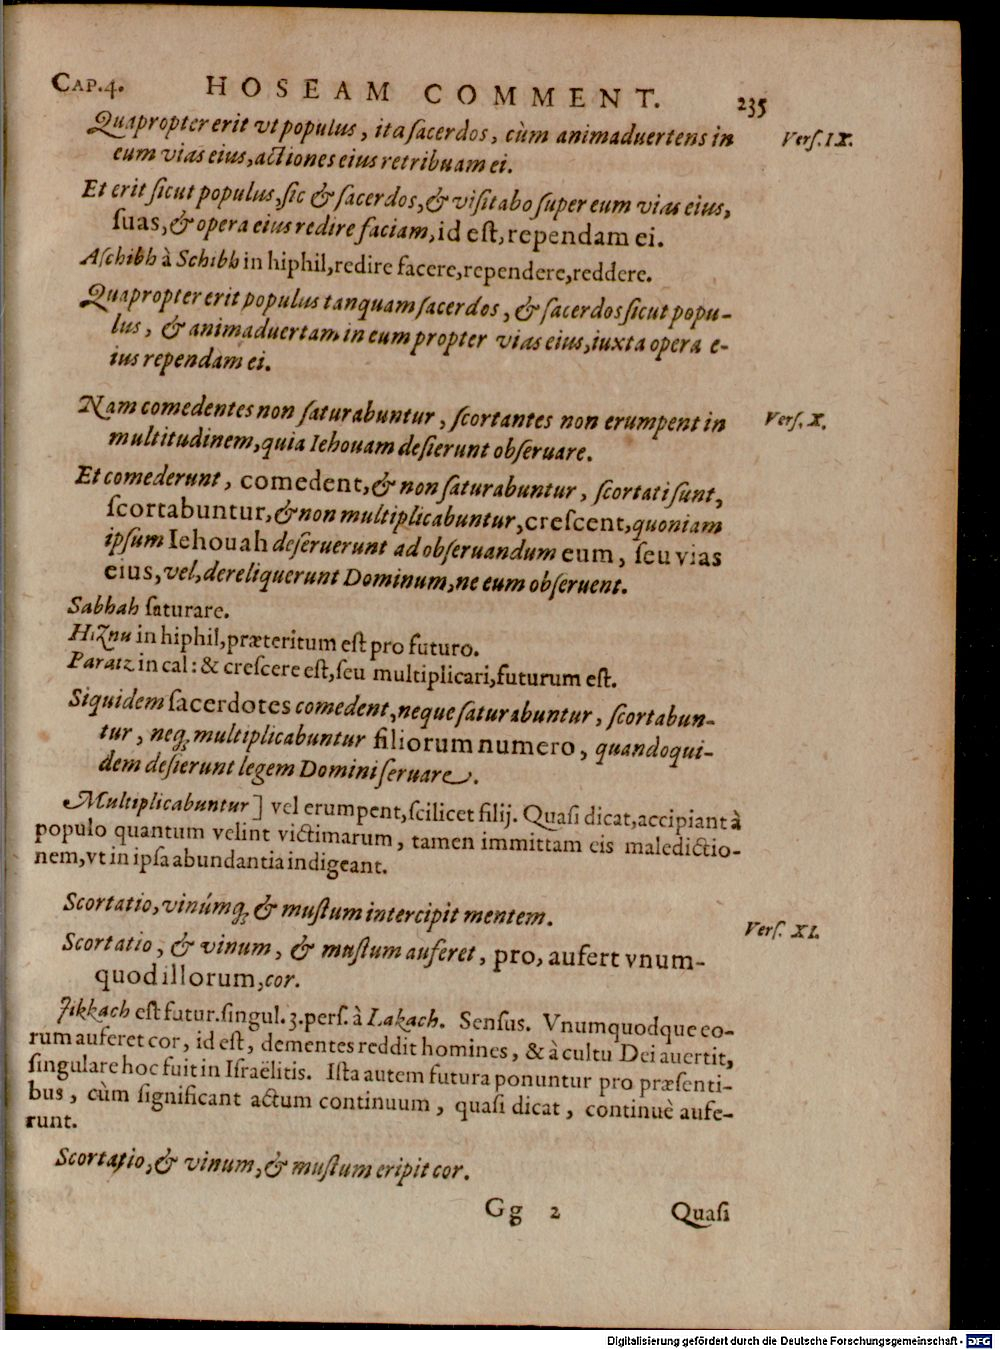 CAP.4. HOSEAM COMMENT. 235
Quapropter erit vt populus, ita sacerdos, cùm animaduertens in
Vers. IX.
eum vias eius, actiones eius retribuam ei.
Et erit sicut populus, sic & sacerdos, & visitabo super eum vias eius,
suas, & opera eius redire faciam, id est, rependam ei.
Aschibh à Schibh in hiphil, redire facere, rependere, reddere.
Quapropter erit populus tanquam sacerdos, & sacerdos sicut popu-
lus, & animaduertam in eum propter vias eius, iuxta opera e-
ius rependam ei.
Nam comedentes non saturabuntur, scortantes non erumpent in
Vers. X.
multitudinem, quia Iehouam desierunt obseruare.
Et comederunt, comedent, & non saturabuntur, scortati sunt,
scortabuntur, & non multiplicabuntur, crescent, quoniam
ipsum Iehouah deseruerunt ad obseruandum eum, seu vias
eius, vel, dereliquerunt Dominum, ne eum obseruent.
Sabhah saturare.
Hiznu in hiphil, præteritum est pro futuro.
Paratz in cal: & crescere est, seu multiplicari, futurum est.
Siquidem sacerdotes comedent, neque saturabuntur, scortabun-
tur, neq; multiplicabuntur filiorum numero, quandoqui-
dem desierunt legem Domini seruare.
Multiplicabuntur] vel erumpent, scilicet filij. Quasi dicat, accipiant à
populo quantum velint victimarum, tamen immittam eis maledictio-
nem, vt in ipsa abundantia indigeant.
Scortatio, vinúmq; & mustum intercipit mentem.
Vers. XI.
Scortatio, & vinum, & mustum auferet, pro, aufert vnum-
quod illorum, cor.
Jikkach est futur. singul. 3. pers. à Lakach. Sensus. Vnumquodque eo-
rum auferet cor, id est, dementes reddit homines, & à cultu Dei auertit,
singulare hoc fuit in Israëlitis. Ista autem futura ponuntur pro præsenti-
bus, cùm significant actum continuum, quasi dicat, continuè aufe-
runt.
Scortatio, & vinum, & mustum eripit cor.
Gg 2 Quasi
Digitalisierung gefördert durch die Deutsche Forschungsgemeinschaft - DFG